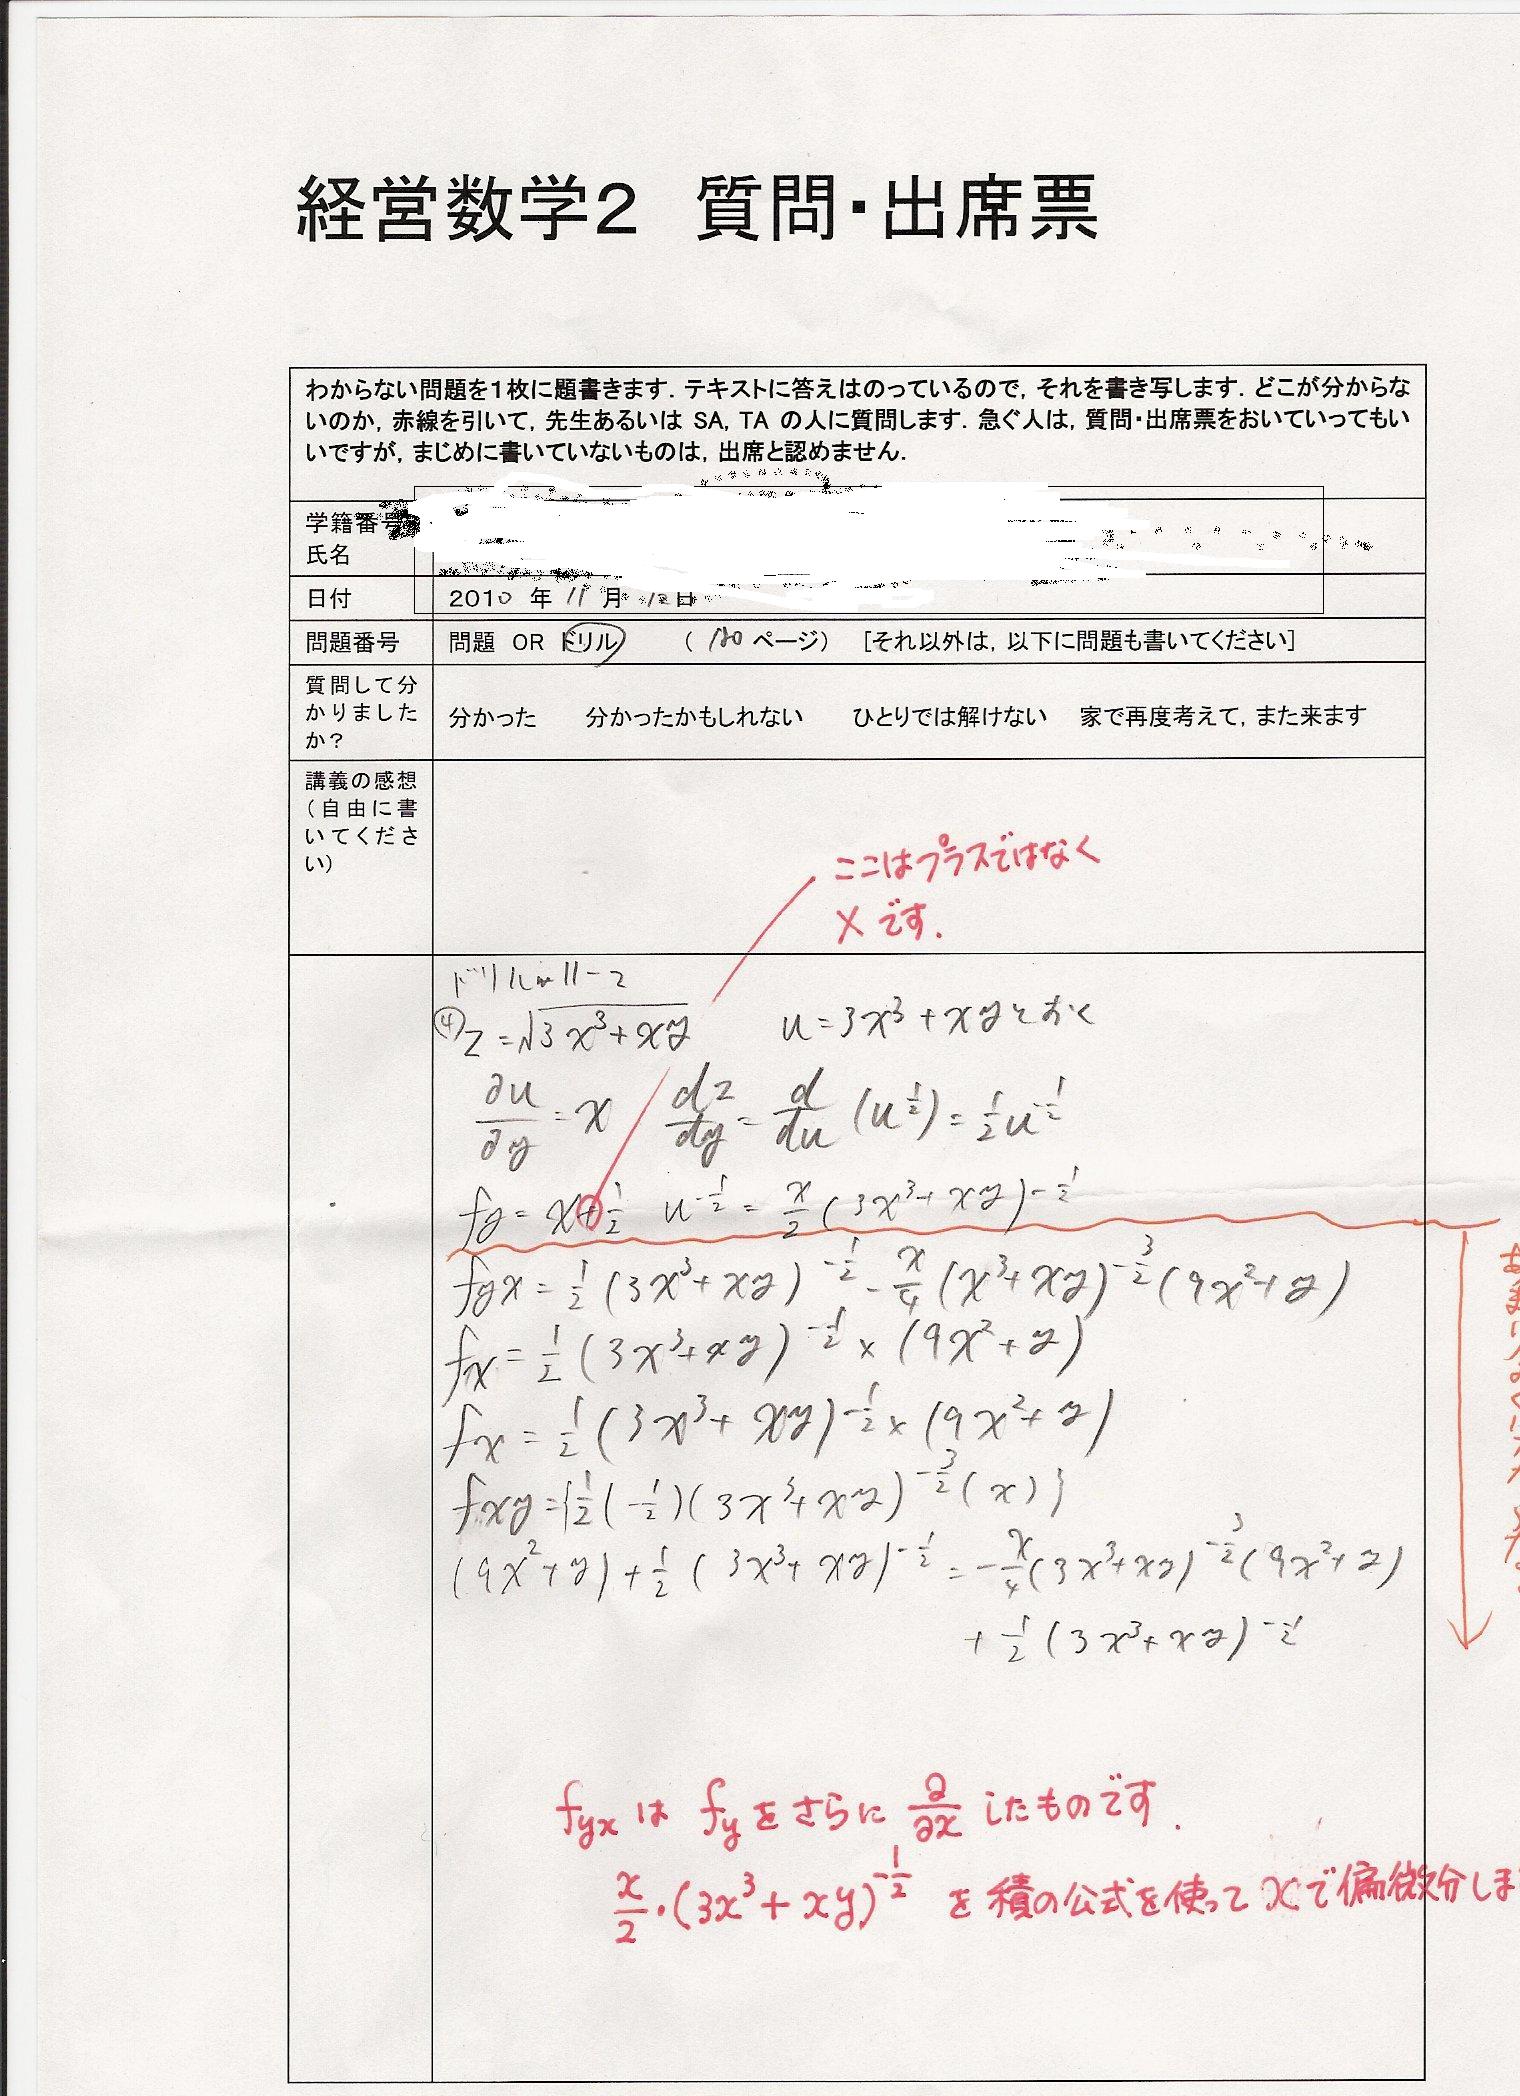 経営数学２　質問・出席票
わからない問題を１枚に題書きます．テキストに答えはのっているので，それを書き写します．どこが分からな
いのか，赤線を引いて，先生あるいは SA，TA の人に質問します．急ぐ人は，質問・出席票をおいていってもい
いですが，まじめに書いていないものは，出席と認めません．
学籍番号
氏名
日付　2010 年 11 月 12日
問題番号　問題 OR ドリル　（ 120 ページ）　［それ以外は，以下に問題も書いてください］
質問して分
かりました
か？
分かった　分かったかもしれない　ひとりでは解けない　家で再度考えて，また来ます
講義の感想
（自由に書
いてくださ
い）
ここはプラスではなく
×です．
ドリルno11-2
④ z=√(3x³+xy)　u=3x³+xyとおく
∂u/∂y=x　dz/dy=d/du(u^{1/2})=1/2u^{-1/2}
fy=x+1/2 u^{-1/2}=x/2(3x³+xy)^{-1/2}
fyx=1/2(3x³+xy)^{-1/2}-x/4(x³+xy)^{-3/2}(9x²+y)
fx=1/2(3x³+xy)^{-1/2}×(9x²+y)
fx=1/2(3x³+xy)^{-1/2}×(9x²+y)
fxy={1/2(-1/2)(3x³+xy)^{-3/2}(x)}
(9x²+y)+1/2(3x³+xy)^{-1/2}=-x/4(3x³+xy)^{-3/2}(9x²+y)
+1/2(3x³+xy)^{-1/2}
fyxは fyをさらに ∂/∂x したものです．
x/2・(3x³+xy)^{-1/2} を積の公式を使ってxで偏微分しま